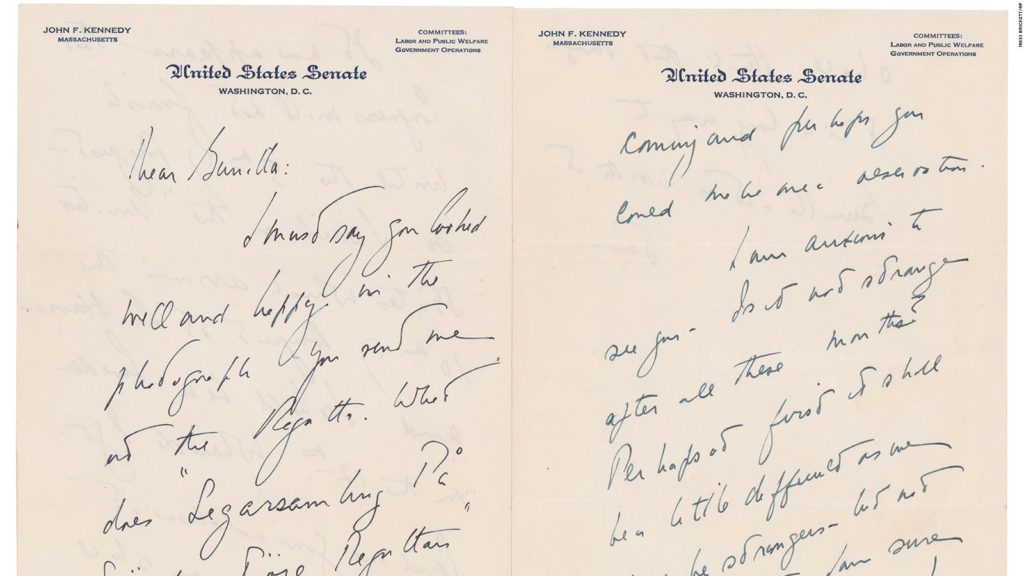 JOHN F. KENNEDY
MASSACHUSETTS
COMMITTEES:
LABOR AND PUBLIC WELFARE
GOVERNMENT OPERATIONS
United States Senate
WASHINGTON, D. C.
Dear Gunilla:
I must say you looked
well and happy in the
photograph you send me
at the Regatta. What
does "Segarsamling På
Regattan"
JOHN F. KENNEDY
MASSACHUSETTS
COMMITTEES:
LABOR AND PUBLIC WELFARE
GOVERNMENT OPERATIONS
United States Senate
WASHINGTON, D. C.
coming and perhaps you
could make me a reservation.
I am anxious to
see you - Is it not strange
after all these months?
Perhaps at first it shall
be a little difficult as we
be strangers - but not
I am sure
NIKKI BRICKETT/AP